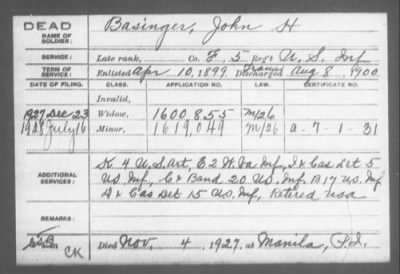 DEAD
NAME OF SOLDIER: Basinger, John H
SERVICE: Late rank, Co. F, 5 Reg't U. S. Inf
TERM OF SERVICE: Enlisted Apr 10, 1899 Trans Discharged Aug 8, 1900
DATE OF FILING. CLASS. APPLICATION NO. LAW. CERTIFICATE NO.
Invalid,
1927 Dec 23 Widow, 1600,855 M/26
1928 July 16 Minor, 1619,049 M/26 a-7-1-31
ADDITIONAL SERVICES: K. 4 U.S. Art, E 2 W. Va Inf, I & Cas Det 5
US Inf, C & Band 20 US. Inf, B 17 US. Inf
D & Cas Det 15 US. Inf, Retired USA
REMARKS:
CK
Died Nov. 4, 1927, at Manila, P.I.